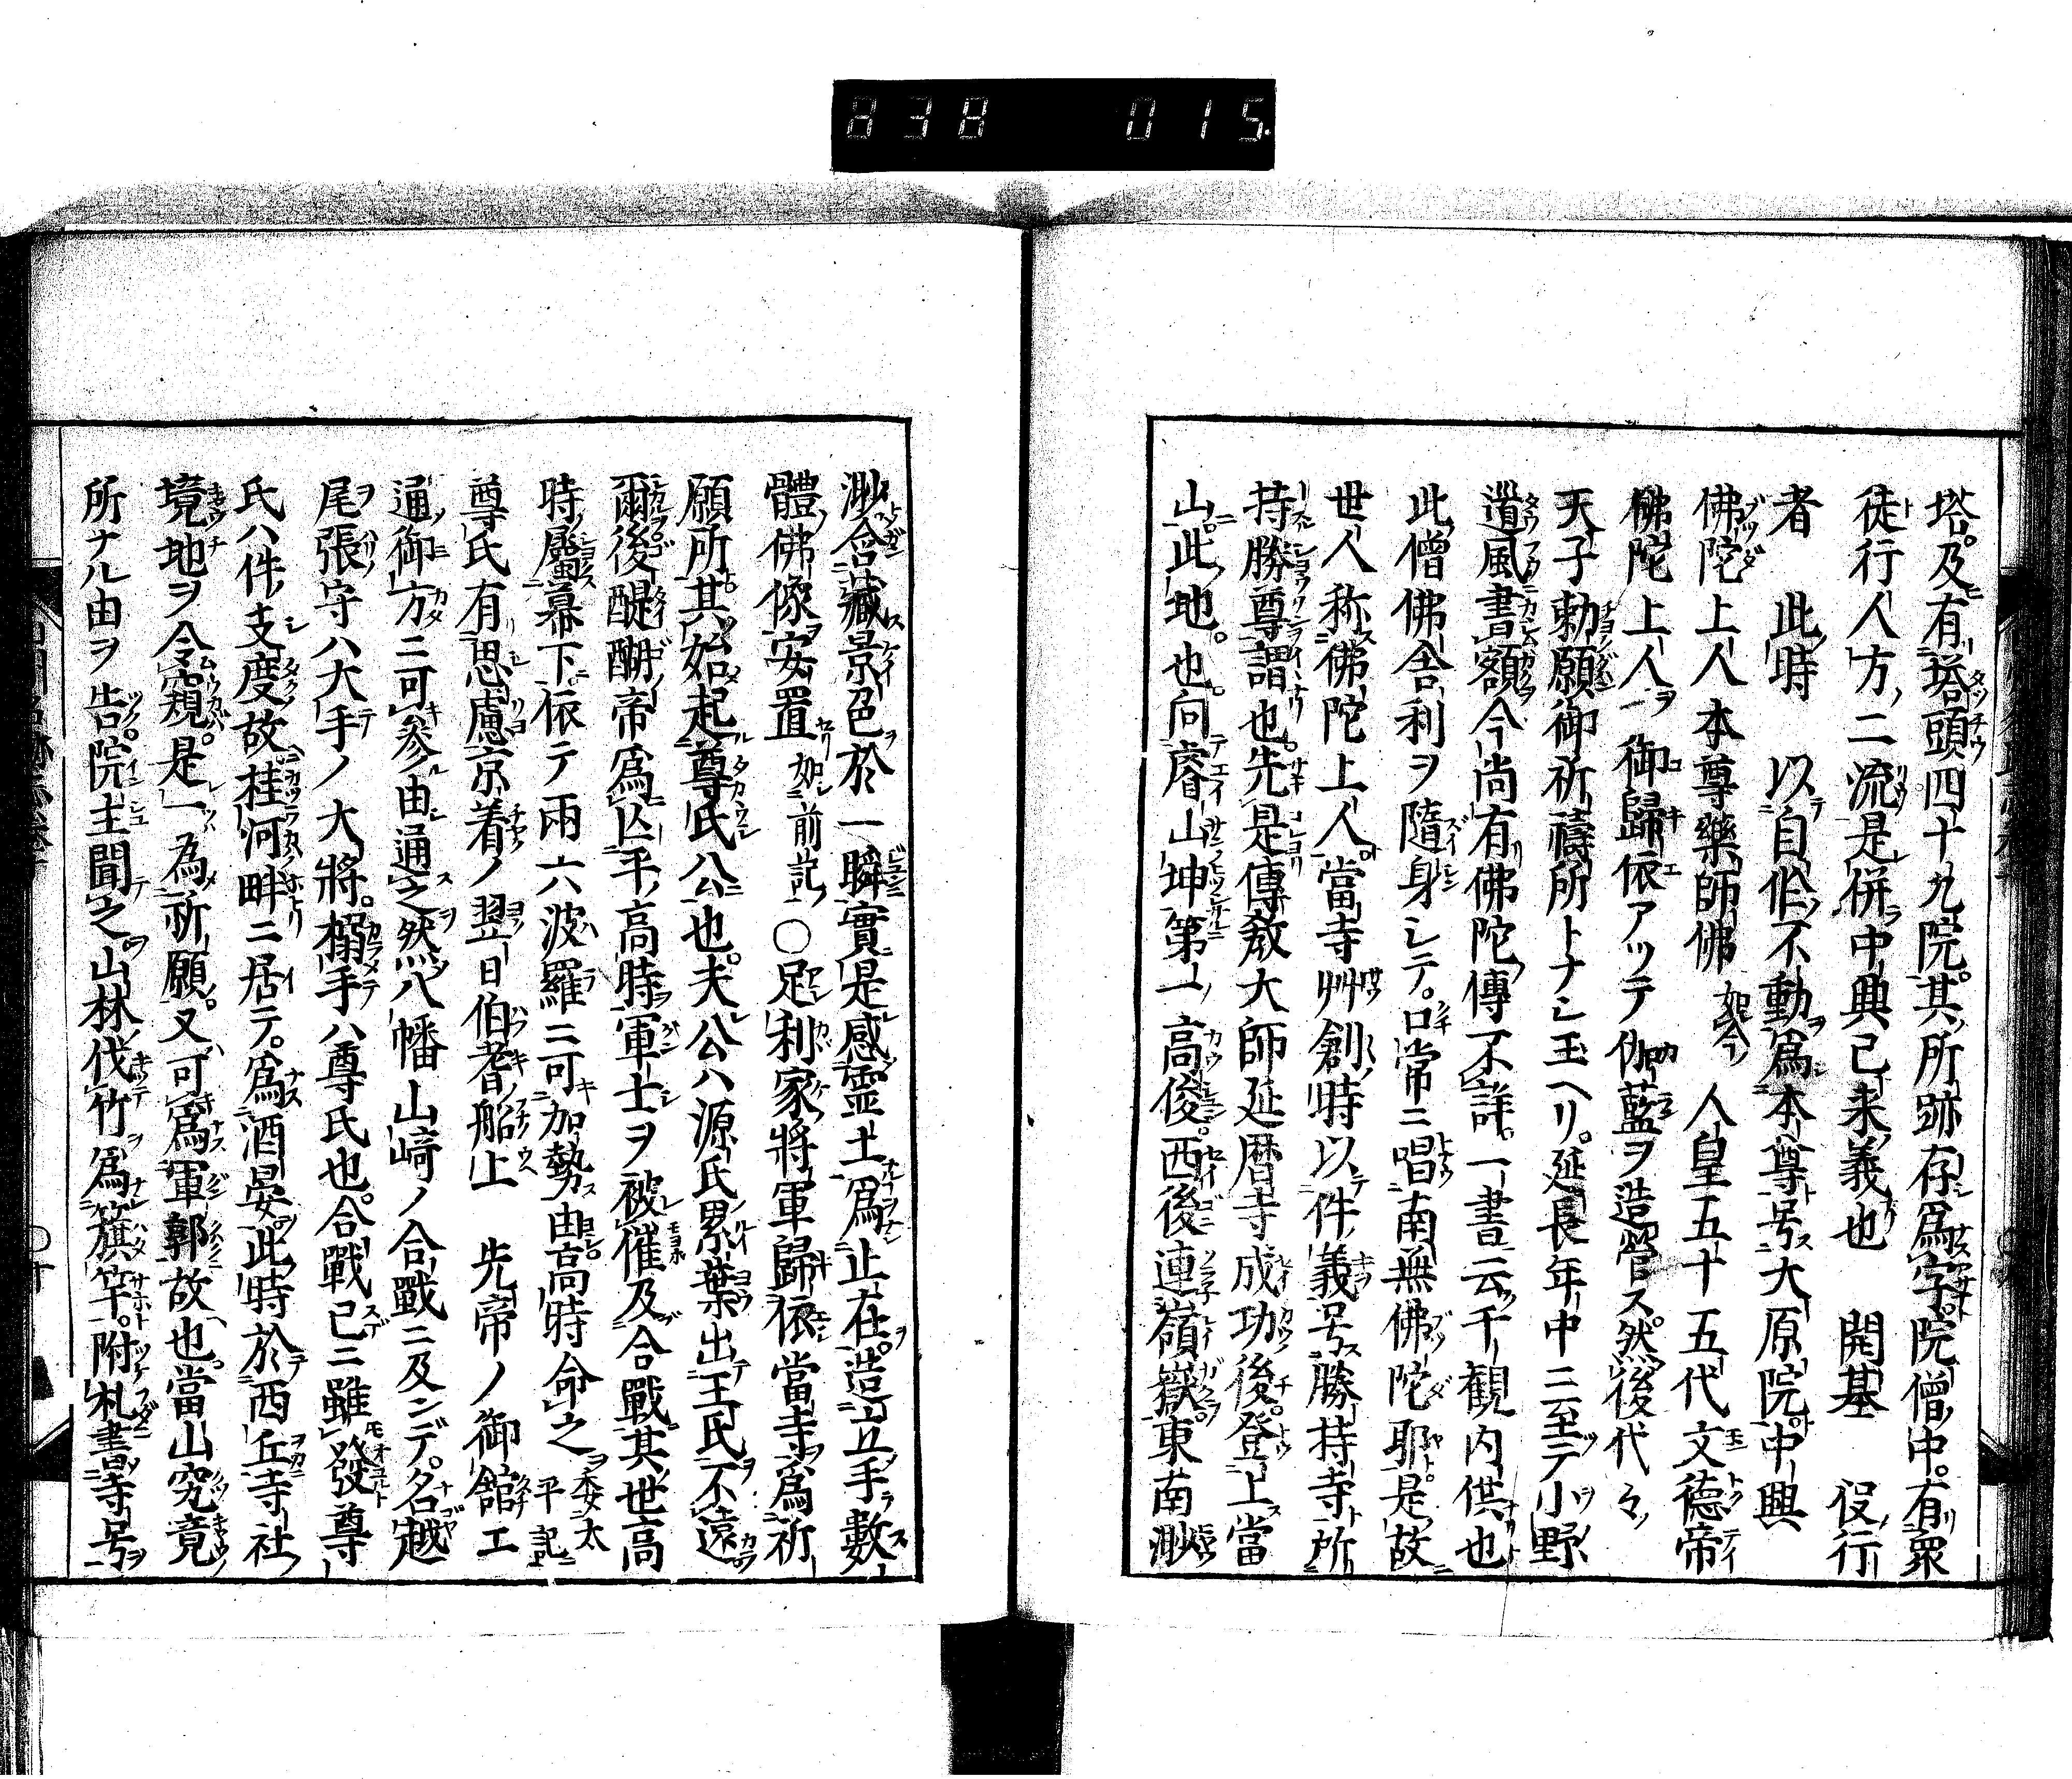 838 015
塔及有塔頭四十九院其所跡存為字院僧中有衆
徒行人方二流是併中興已来義也 開基 役行
者 此時 以自作不動為本尊号大原院中興
佛陀上人本尊藥師佛 如今 人皇五十五代文徳帝
佛陀上人御歸依アツテ伽藍ヲ造営ス然後代々
天子勅願御祈禱所トナシ玉ヘリ延長年中ニ至テ小野
道風書額今尚有佛陀傳不詳一書云千観内供也
此僧佛舎利ヲ隨身シテ口常ニ唱南無佛陀耶是故
世人称佛陀上人當寺艸創時以件義号勝持寺所
持勝尊謂也先是傳教大師延暦寺成功後登上當
山此地也向睿山坤第一高俊西後連嶺嶽東南渺
渺含藏景色於一瞬實是感霊土為止在造立手數
體佛像安置如前記〇足利家將軍歸依當寺為祈
願所其始起尊氏公也夫公ハ源氏累葉出王氏不遠
爾後醍醐帝為亡平高時軍士ヲ被催及合戰其世高
時屬幕下依テ兩六波羅ニ可加勢由高時命之委太平記
尊氏有思慮京着ノ翌日伯耆船上 先帝ノ御舘エ
通御方ニ可参由通之然八幡山﨑ノ合戰ニ及ンデ名越
尾張守ハ大手ノ大將搦手ハ尊氏也合戰已ニ雖發尊
氏ハ件支度故桂河畔ニ居テ為酒晏此時於西丘寺社
境地ヲ令窺是一為祈願又可為軍郭故也當山究竟
所ナル由ヲ告院主聞之山林伐竹為簱竿附札書寺号